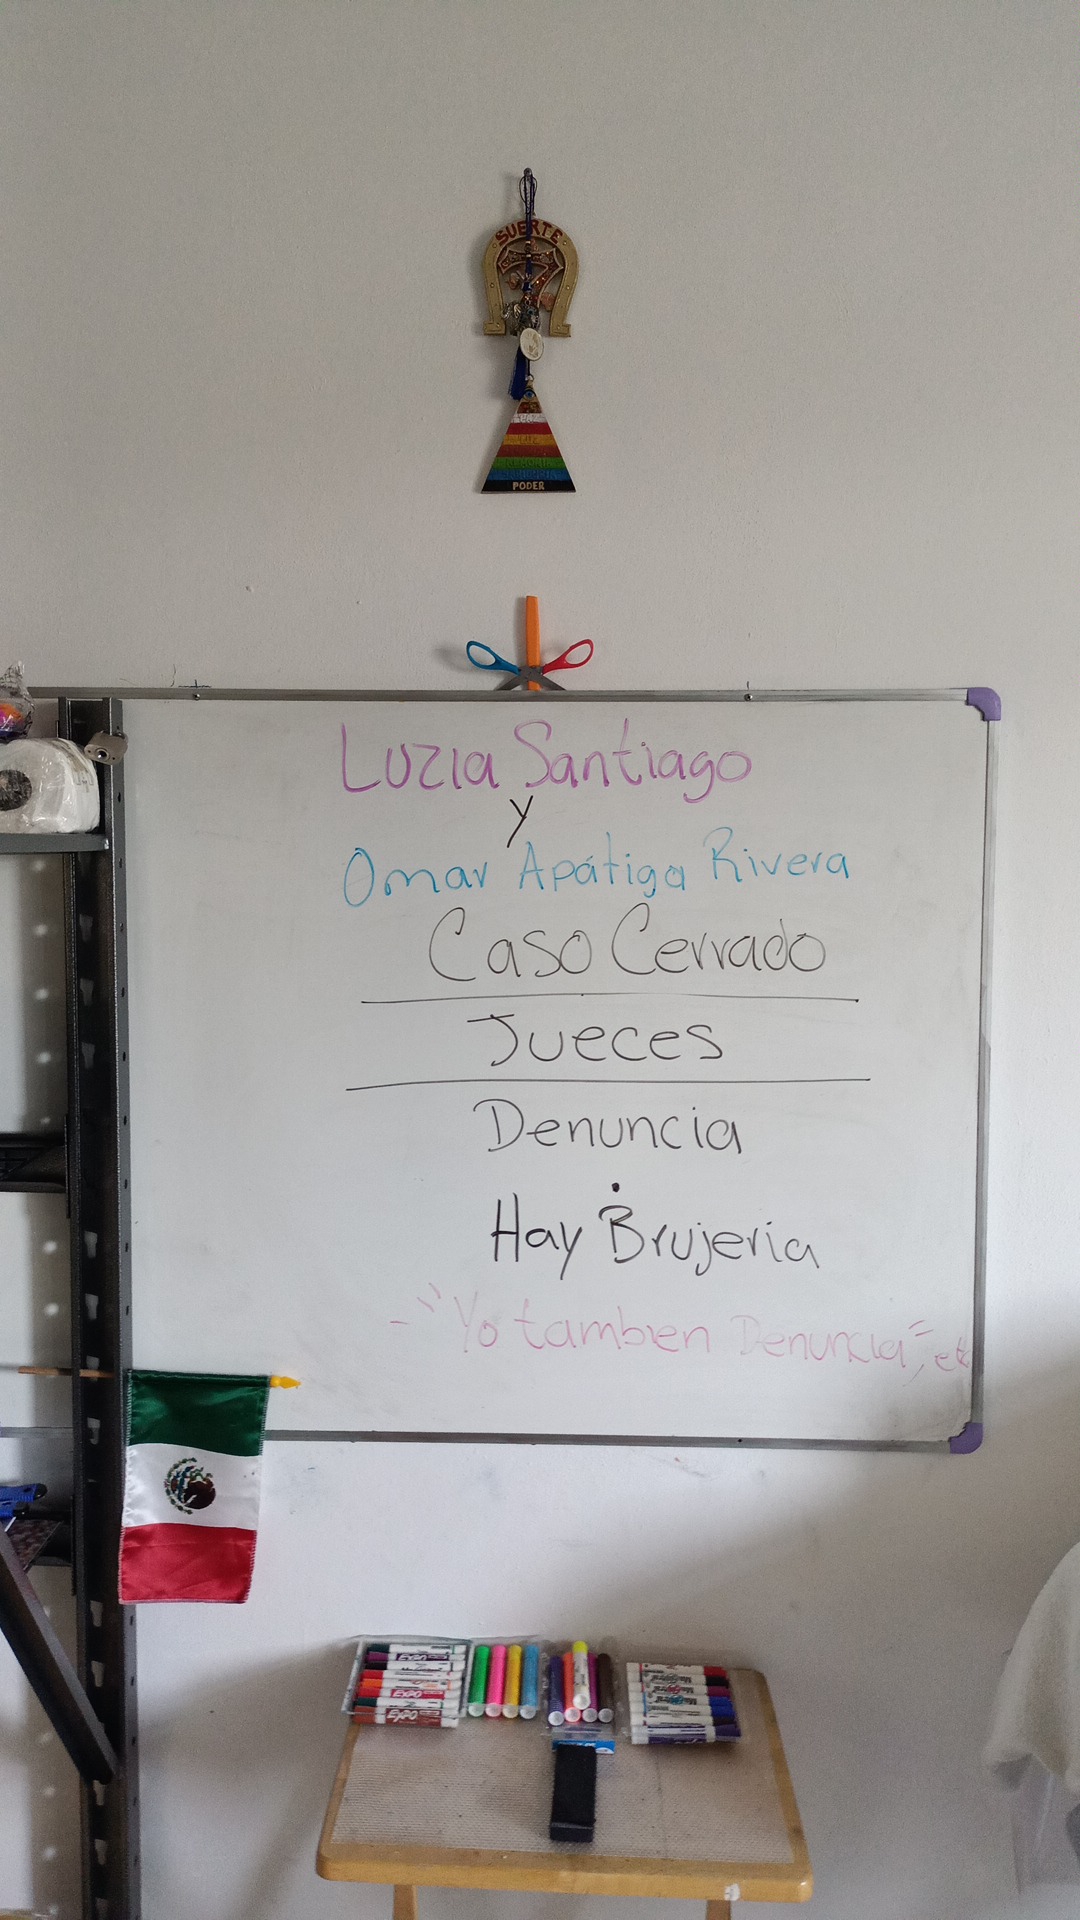 SUERTE
7
PODER
Luzia Santiago
y
Omar Apátiga Rivera
Caso Cerrado
Jueces
Denuncia
Hay Brujeria
- "Yo tambien Denuncia", etc
EXPO
EXPO
EXPO